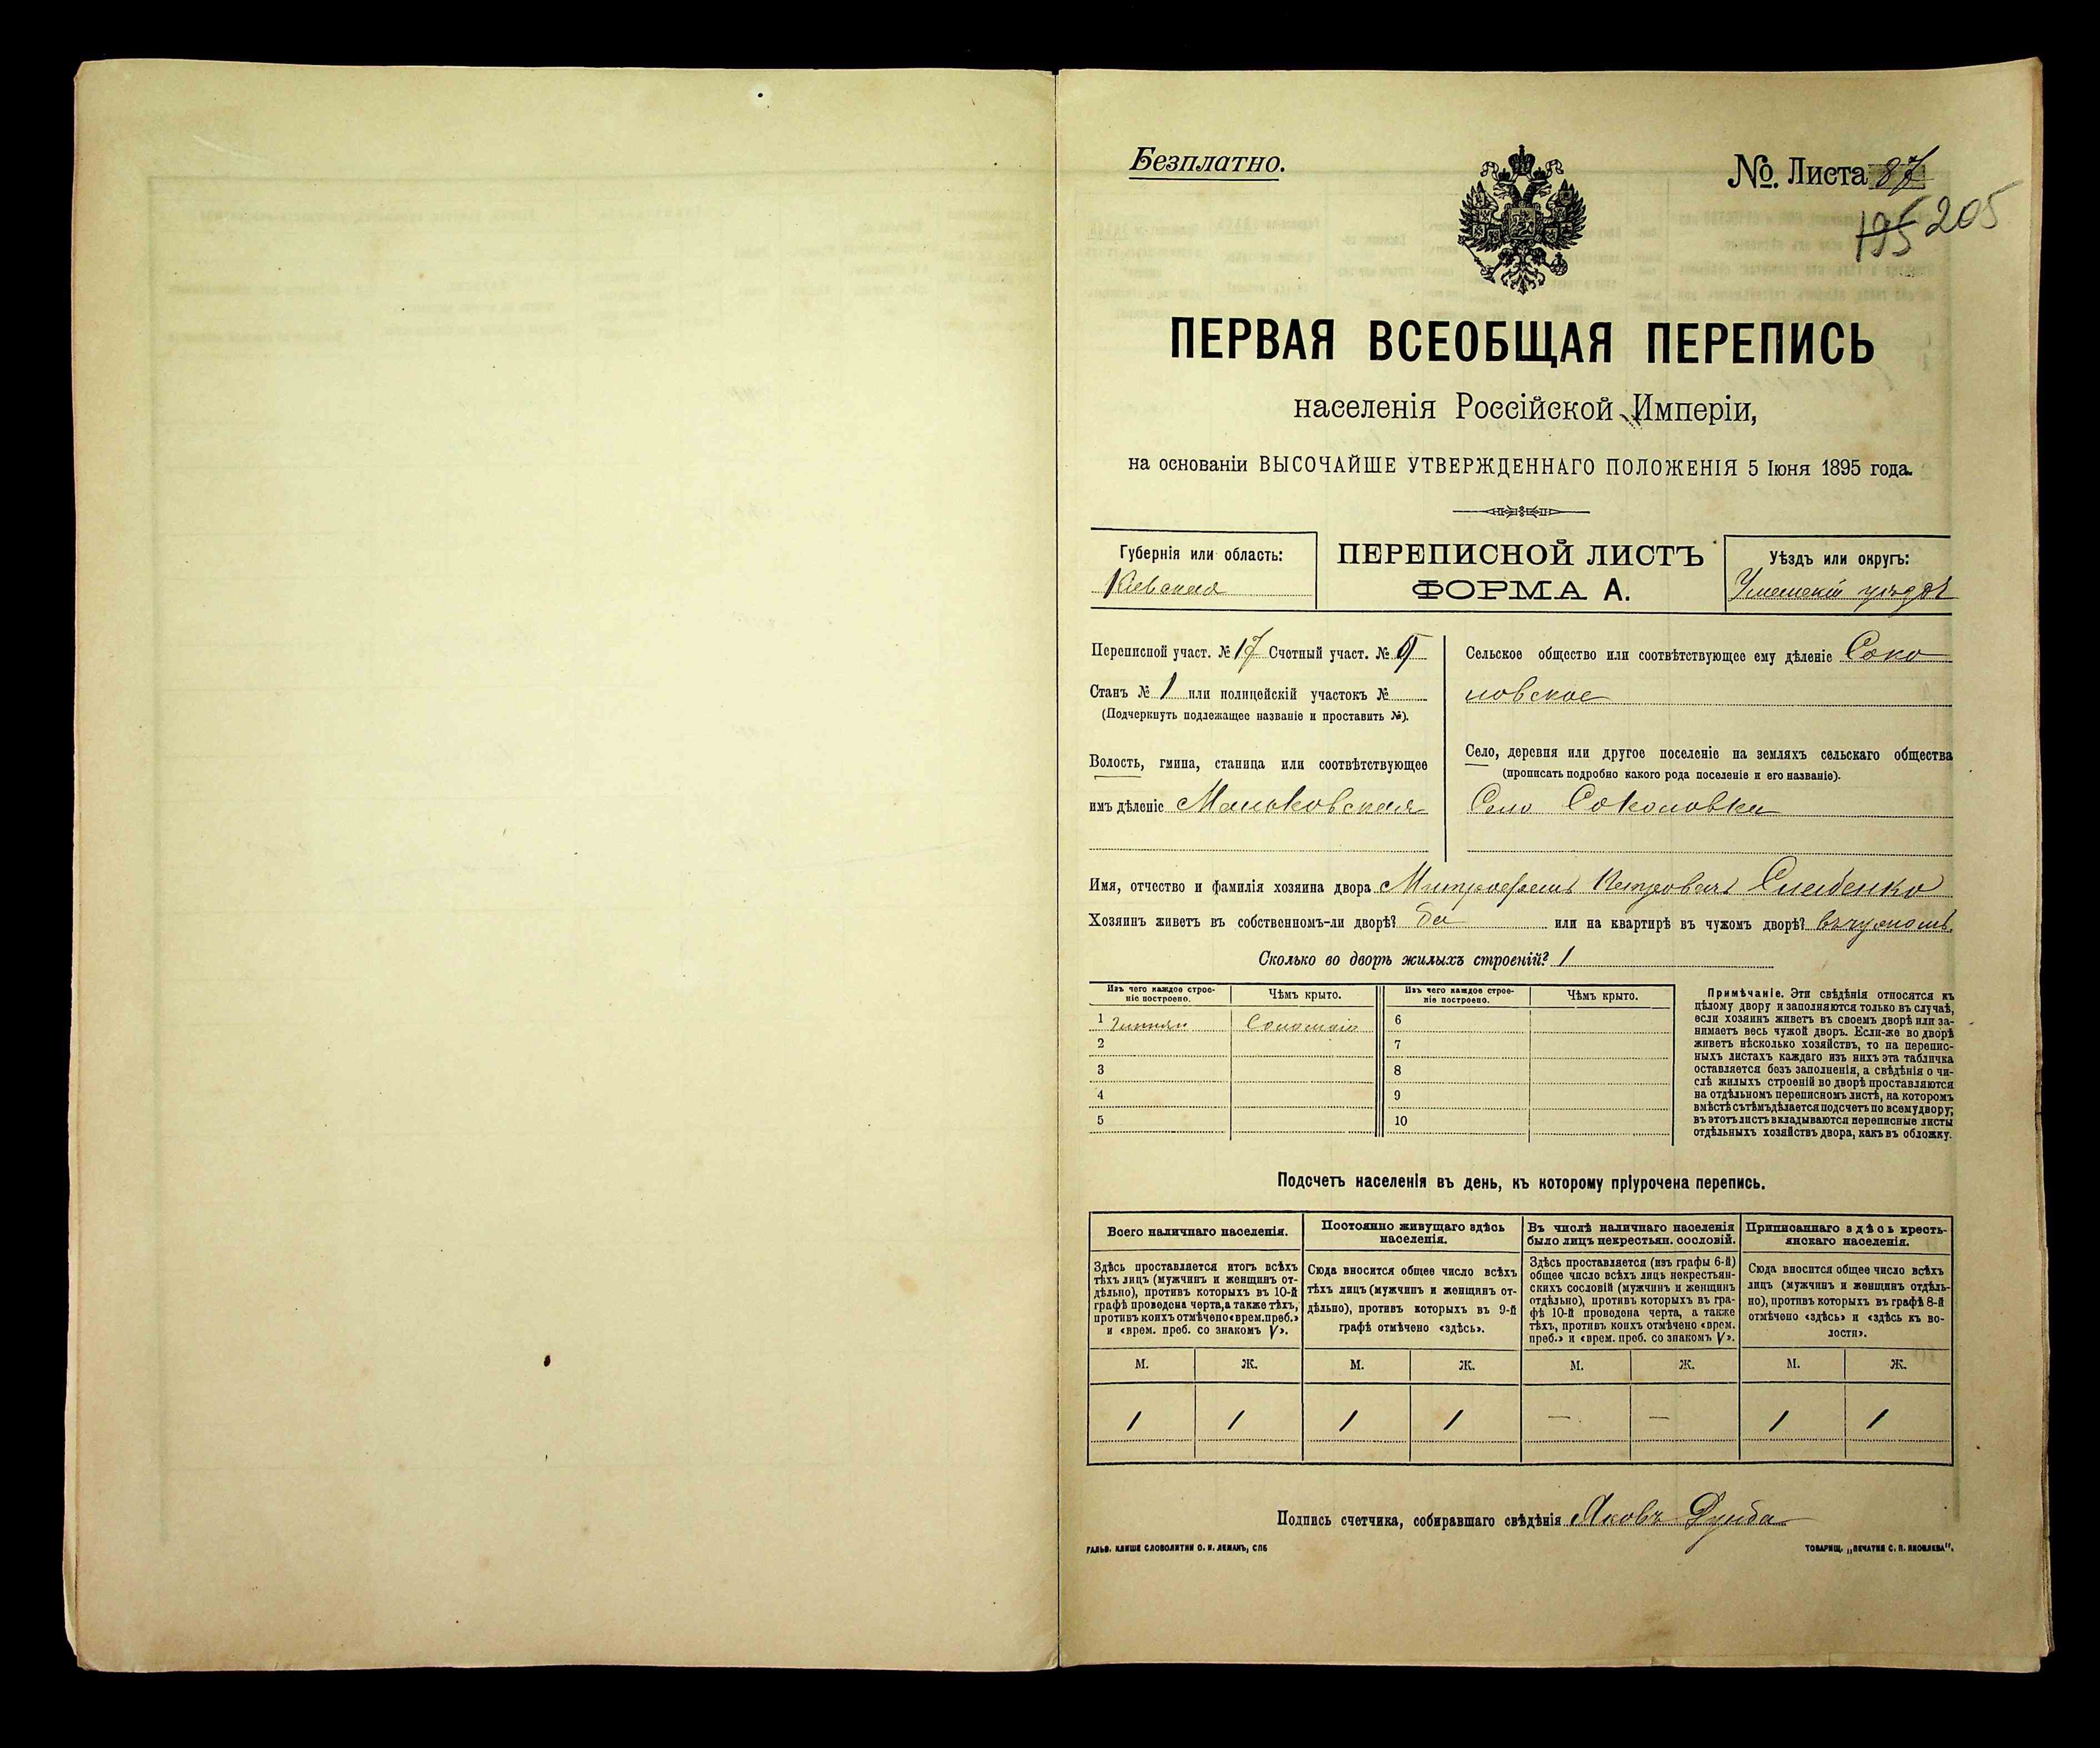 Безплатно.
№ Листа 87
195 205
ПЕРВАЯ ВСЕОБЩАЯ ПЕРЕПИСЬ
населенія Россійской Имперіи,
на основаніи ВЫСОЧАЙШЕ УТВЕРЖДЕННАГО ПОЛОЖЕНІЯ 5 Іюня 1895 года.
Губернія или область:
Кіевская
ПЕРЕПИСНОЙ ЛИСТЪ
ФОРМА А.
Уѣздъ или округъ:
Уманскій уѣздъ
Переписной участ. № 17 Счетный участ. №
Станъ № 1 или полицейскій участокъ №
(Подчеркнуть подлежащее названіе и проставить №).
Волость, гмина, станица или соотвѣтствующее
имъ дѣленіе
Сельское общество или соотвѣтствующее ему дѣленіе Соко
ловское
Село, деревня или другое поселеніе на земляхъ сельскаго общества
(прописать подробно какого рода поселеніе и его названіе).
Село Соколовка
Имя, отчество и фамилія хозяина двора Митрофанъ Петровичъ
Хозяинъ живетъ въ собственномъ-ли дворѣ? да или на квартирѣ въ чужомъ дворѣ?
Сколько во дворѣ жилыхъ строеній? 1
Изъ чего каждое строе-
ніе построено.
Чѣмъ крыто.
Изъ чего каждое строе-
ніе построено.
Чѣмъ крыто.
1 Соломою 6
2 7
3 8
4 9
5 10
Примѣчаніе. Эти свѣдѣнія относятся къ
цѣлому двору и заполняются только въ случаѣ,
если хозяинъ живетъ въ своемъ дворѣ или за-
нимаетъ весь чужой дворъ. Если-же во дворѣ
живетъ нѣсколько хозяйствъ, то на перепис-
ныхъ листахъ каждаго изъ нихъ эта табличка
оставляется безъ заполненія, а свѣдѣнія о чи-
слѣ жилыхъ строеній во дворѣ проставляются
на отдѣльномъ переписномъ листѣ, на которомъ
вмѣстѣ съ тѣмъ дѣлается подсчетъ по всему двору;
въ этотъ листъ вкладываются переписные листы
отдѣльныхъ хозяйствъ двора, какъ въ обложку.
Подсчетъ населенія въ день, къ которому пріурочена перепись.
Всего наличнаго населенія.
Здѣсь проставляется итогъ всѣхъ
тѣхъ лицъ (мужчинъ и женщинъ от-
дѣльно), противъ которыхъ въ 10-й
графѣ проведена черта, а также тѣхъ,
противъ коихъ отмѣчено «врем. преб.»
и «врем. преб. со знакомъ V».
Постоянно живущаго здѣсь
населенія.
Сюда вносится общее число всѣхъ
тѣхъ лицъ (мужчинъ и женщинъ от-
дѣльно), противъ которыхъ въ 9-й
графѣ отмѣчено «здѣсь».
Въ числѣ наличнаго населенія
было лицъ некрестьян. сословій.
Здѣсь проставляется (изъ графы 6-й)
общее число всѣхъ лицъ некрестьян-
скихъ сословій (мужчинъ и женщинъ
отдѣльно), противъ которыхъ въ гра-
фѣ 10-й проведена черта, а также
тѣхъ, противъ коихъ отмѣчено «врем.
преб.» и «врем. преб. со знакомъ V».
Приписаннаго здѣсь кресть-
янскаго населенія.
Сюда вносится общее число всѣхъ
лицъ (мужчинъ и женщинъ отдѣль-
но), противъ которыхъ въ графѣ 8-й
отмѣчено «здѣсь» и «здѣсь къ во-
лости».
М. Ж. М. Ж. М. Ж. М. Ж.
1 1 1 1 — — 1 1
Подпись счетчика, собиравшаго свѣдѣнія Яковъ
ГАЛЬВ. КЛИШЕ СЛОВОЛИТНИ О. И. ЛЕМАНЪ, СПБ
ТОВАРИЩ. „ПЕЧАТНЯ С. П. ЯКОВЛЕВА“.